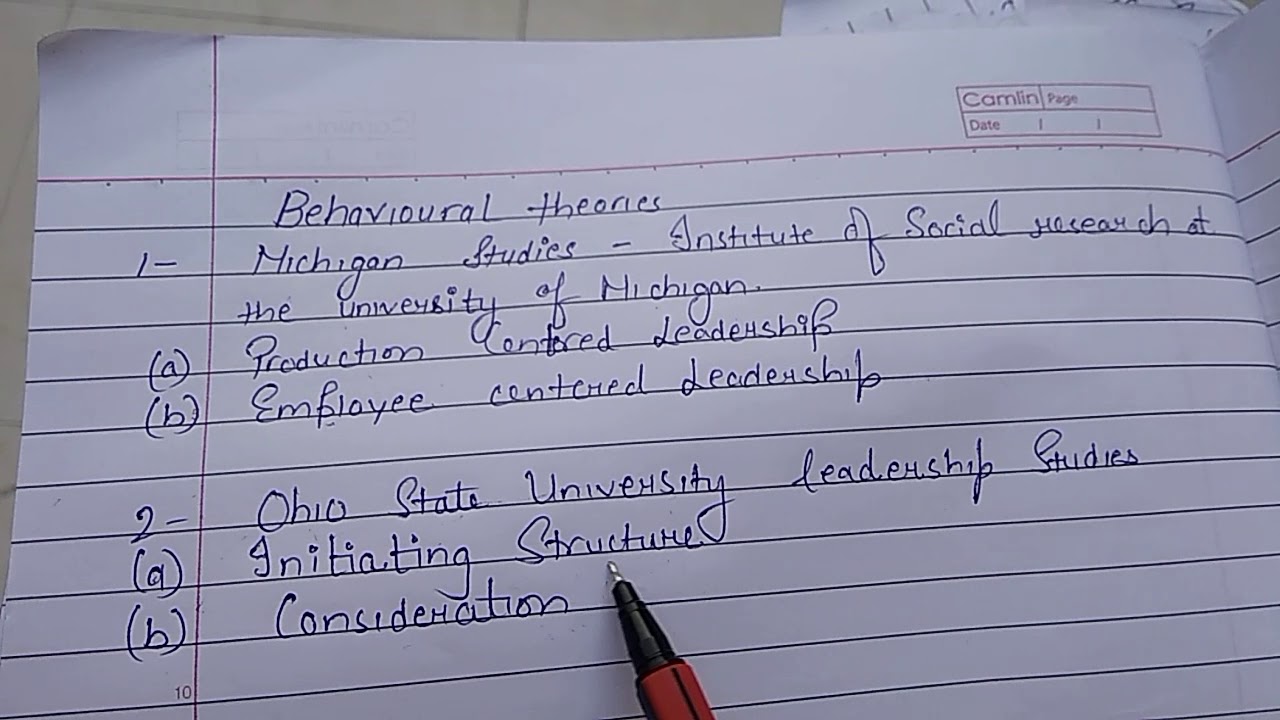 Camlin Page
Date
Behavioural theories
1- Michigan Studies - Institute of Social research at
the University of Michigan.
(a) Production Centered Leadership
(b) Employee centered Leadership
2- Ohio State University leadership Studies
(a) Initiating Structure
(b) Consideration
10